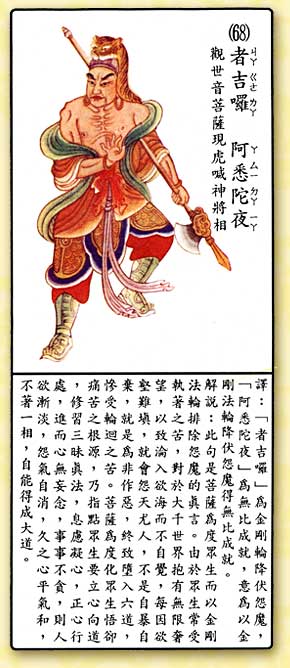 (68)者吉囉 阿悉陀夜
觀世音菩薩現虎喊神將相
譯:「者吉囉」爲金剛輪降伏怨魔,
「阿悉陀夜」爲無比成就,意爲以金
剛法輪降伏怨魔得無比成就。
解說:此句是菩薩爲度眾生而以金剛
法輪排除怨魔的眞言。由於眾生常受
執著之苦,對於大千世界抱有無限奢
望,以致淪入欲海而不自覺,每因欲
壑難填,就會怨天尤人,不是自暴自
棄,就是爲非作惡,終致墮入六道,
慘受輪迴之苦。菩薩爲度化眾生悟卻
痛苦之根源,乃指點眾生要立心向道
,修習三昧眞法,息慮凝心,正心行
處,進而心無妄念,事事不貪,則人
欲漸淡,怨氣自消,久之心平氣和,
不著一相,自能得成大道。